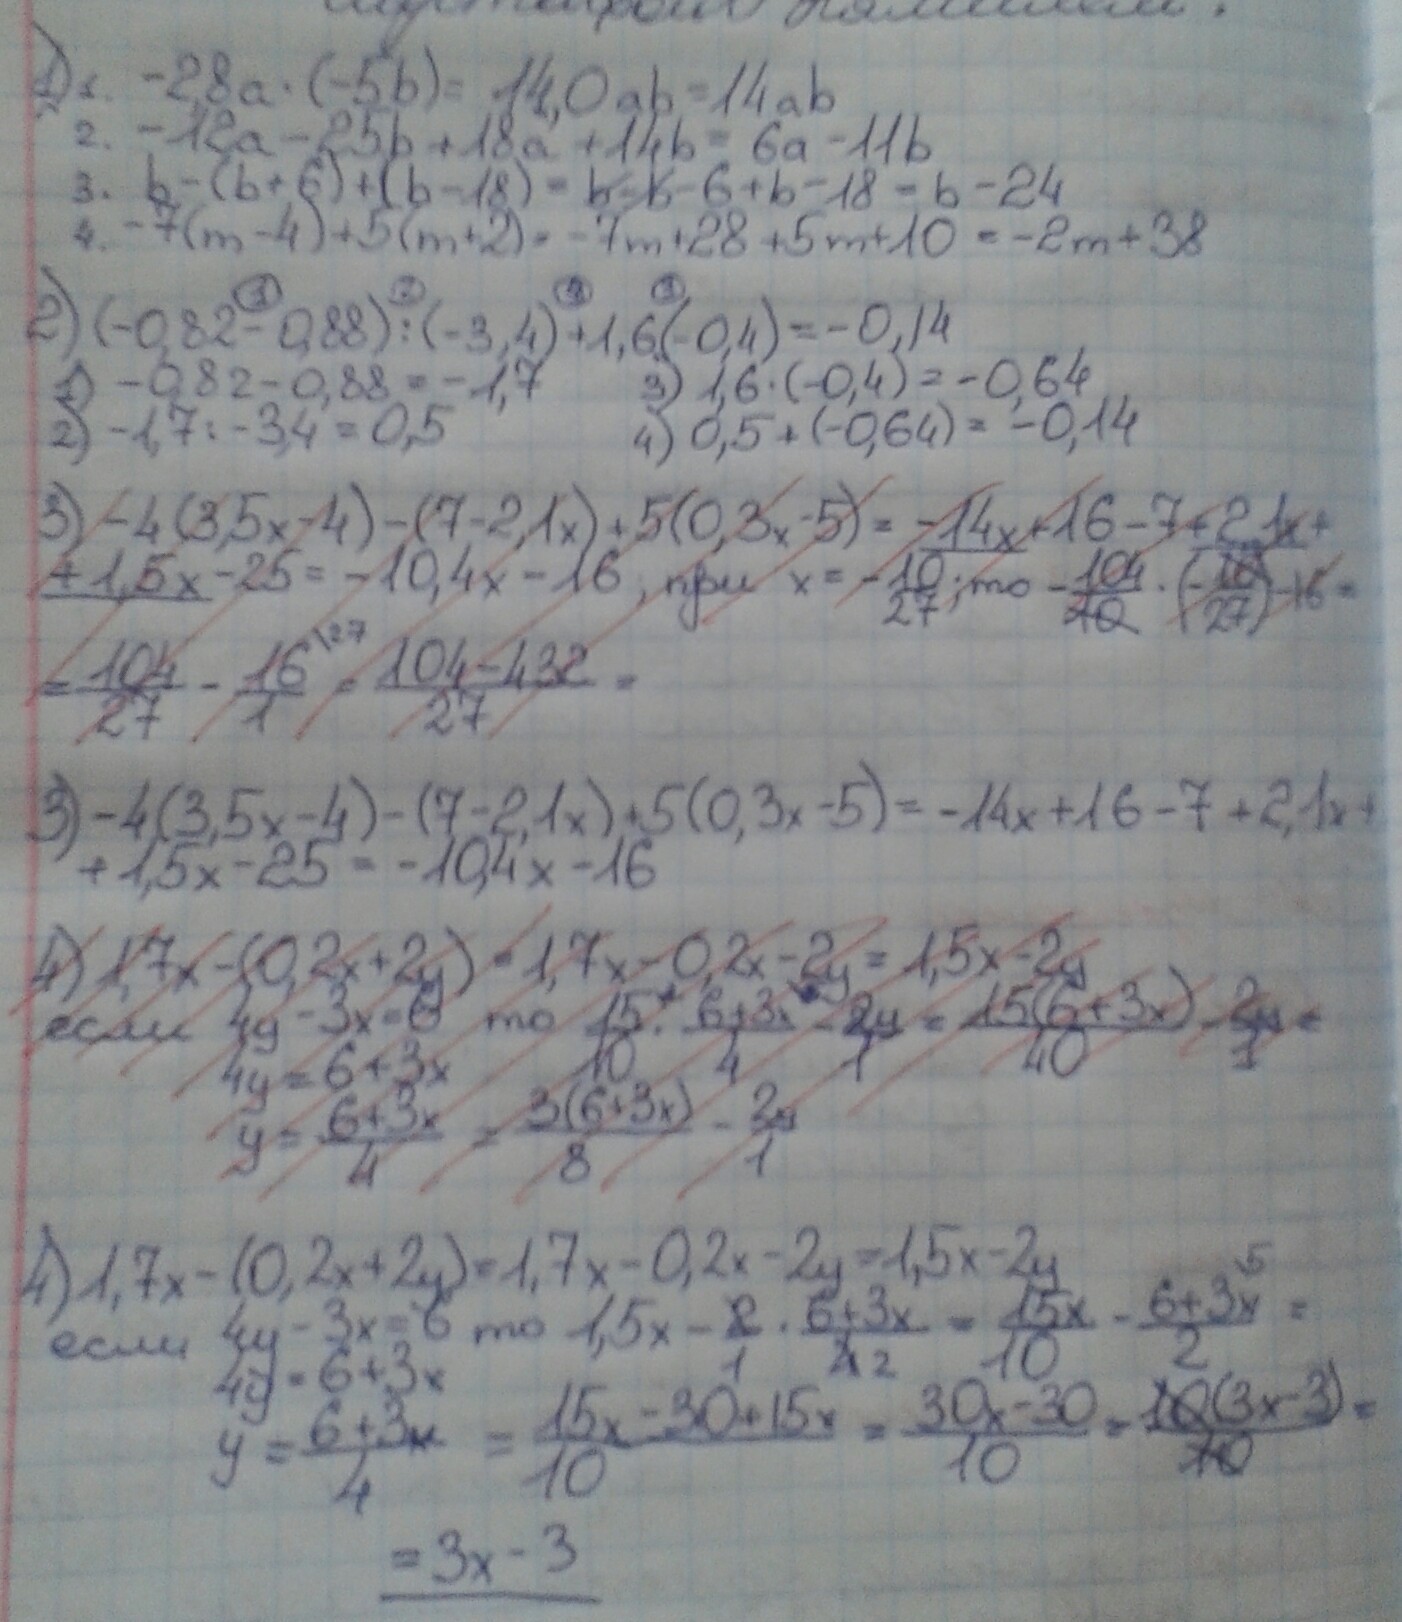 1) 1. -2,8a·(-5b)= 14,0ab=14ab
2. -12a-25b+18a+14b= 6a-11b
3. b-(b+6)+(b-18)= b-b-6+b-18=b-24
4. -7(m-4)+5(m+2)= -7m+28+5m+10=-2m+38
2) (-0,82-0,88):(-3,4)+1,6(-0,4)=-0,14
1) -0,82-0,88=-1,7 3) 1,6·(-0,4)=-0,64
2) -1,7:-3,4=0,5 4) 0,5+(-0,64)=-0,14
3) -4(3,5x-4)-(7-2,1x)+5(0,3x-5)= -14x+16-7+2,1x+
+1,5x-25=-10,4x-16, при x=-10/27; то -104/10·(-10/27)-16=
=104/27-16/1\27=104-432/27=
3) -4(3,5x-4)-(7-2,1x)+5(0,3x-5)=-14x+16-7+2,1x+
+1,5x-25=-10,4x-16
4) 1,7x-(0,2x+2y)=1,7x-0,2x-2y=1,5x-2y
если 4y-3x=6 то 15/10·6+3x/4-2y/1=15(6+3x)/40-2y/1=
4y=6+3x
y=6+3x/4 =3(6+3x)/8-2y/1
4) 1,7x-(0,2x+2y)=1,7x-0,2x-2y=1,5x-2y
если 4y-3x=6 то 1,5x-2/1·6+3x/42=15x/10-6+3x\5/2=
4y=6+3x
y=6+3x/4 =15x-30+15x/10=30x-30/10=10(3x-3)/10=
=3x-3